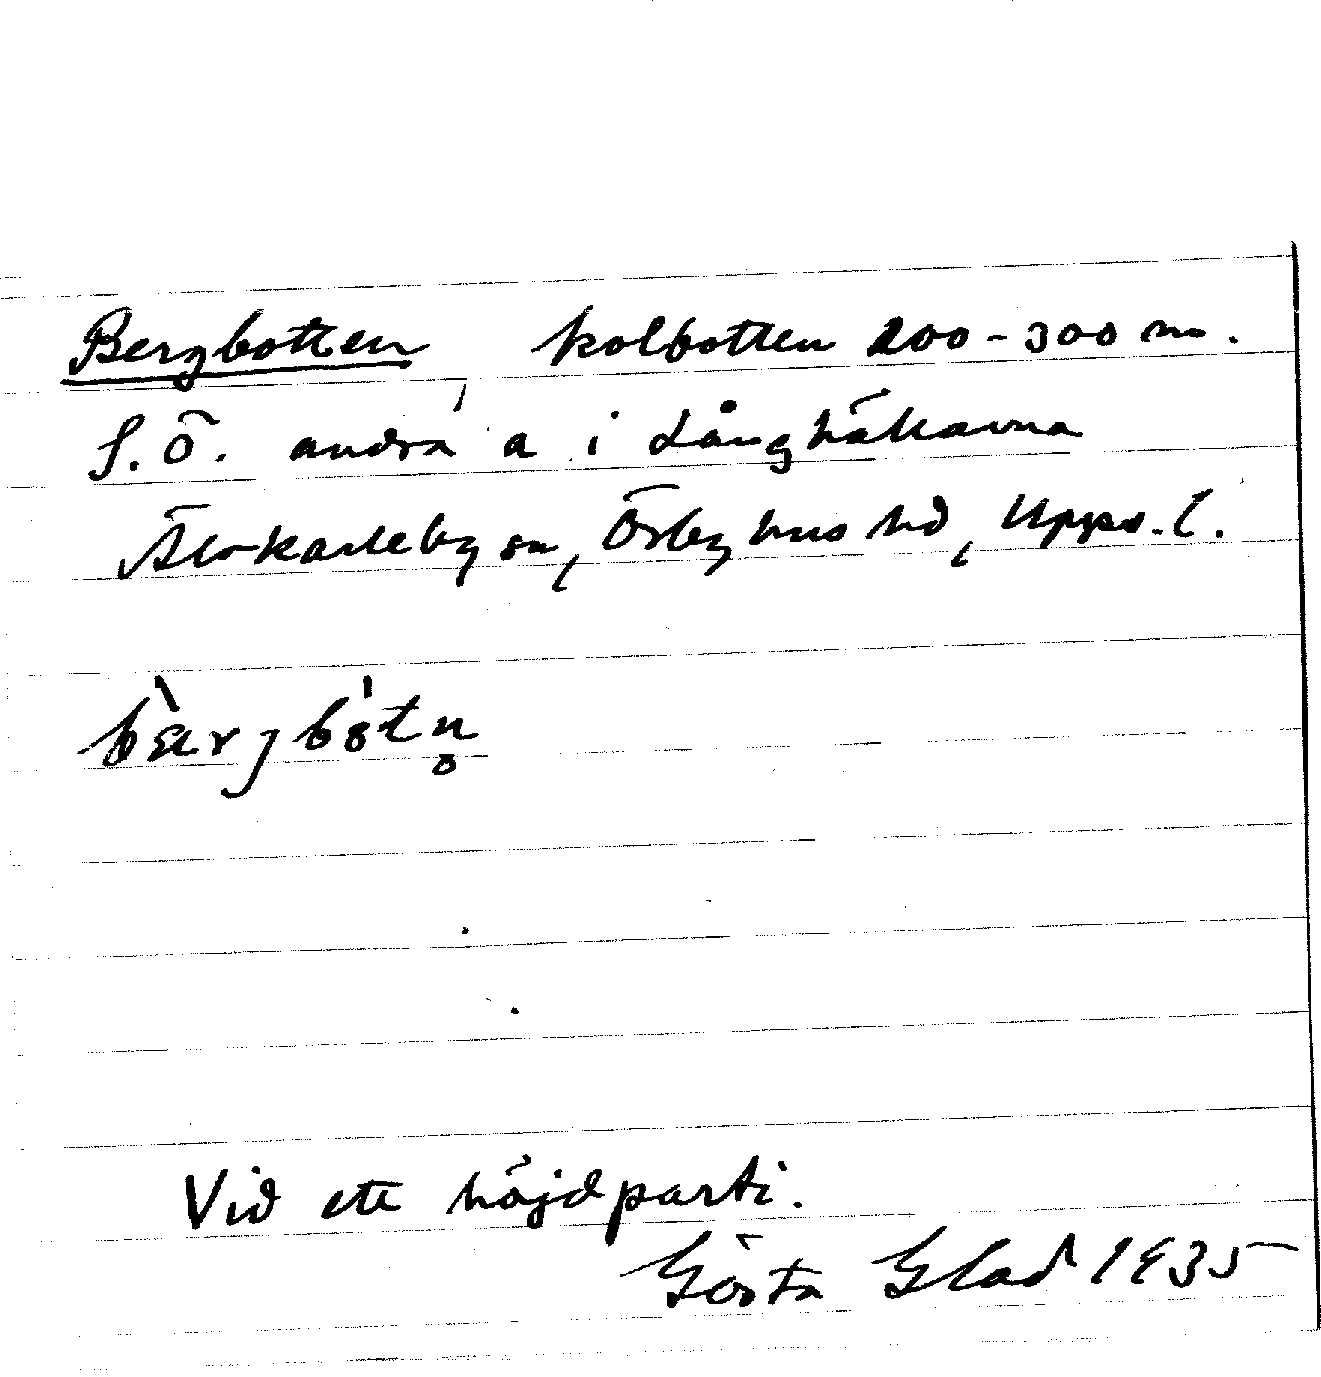 Bergbotten, kolbotten 200-300 m.
S.Ö. andra a i Långhäkarna
Älvkarleby sn, Örbyhus hd, Upps. l.
bærjbotn̥
Vid ett höjdparti.
Gösta Glad 1935